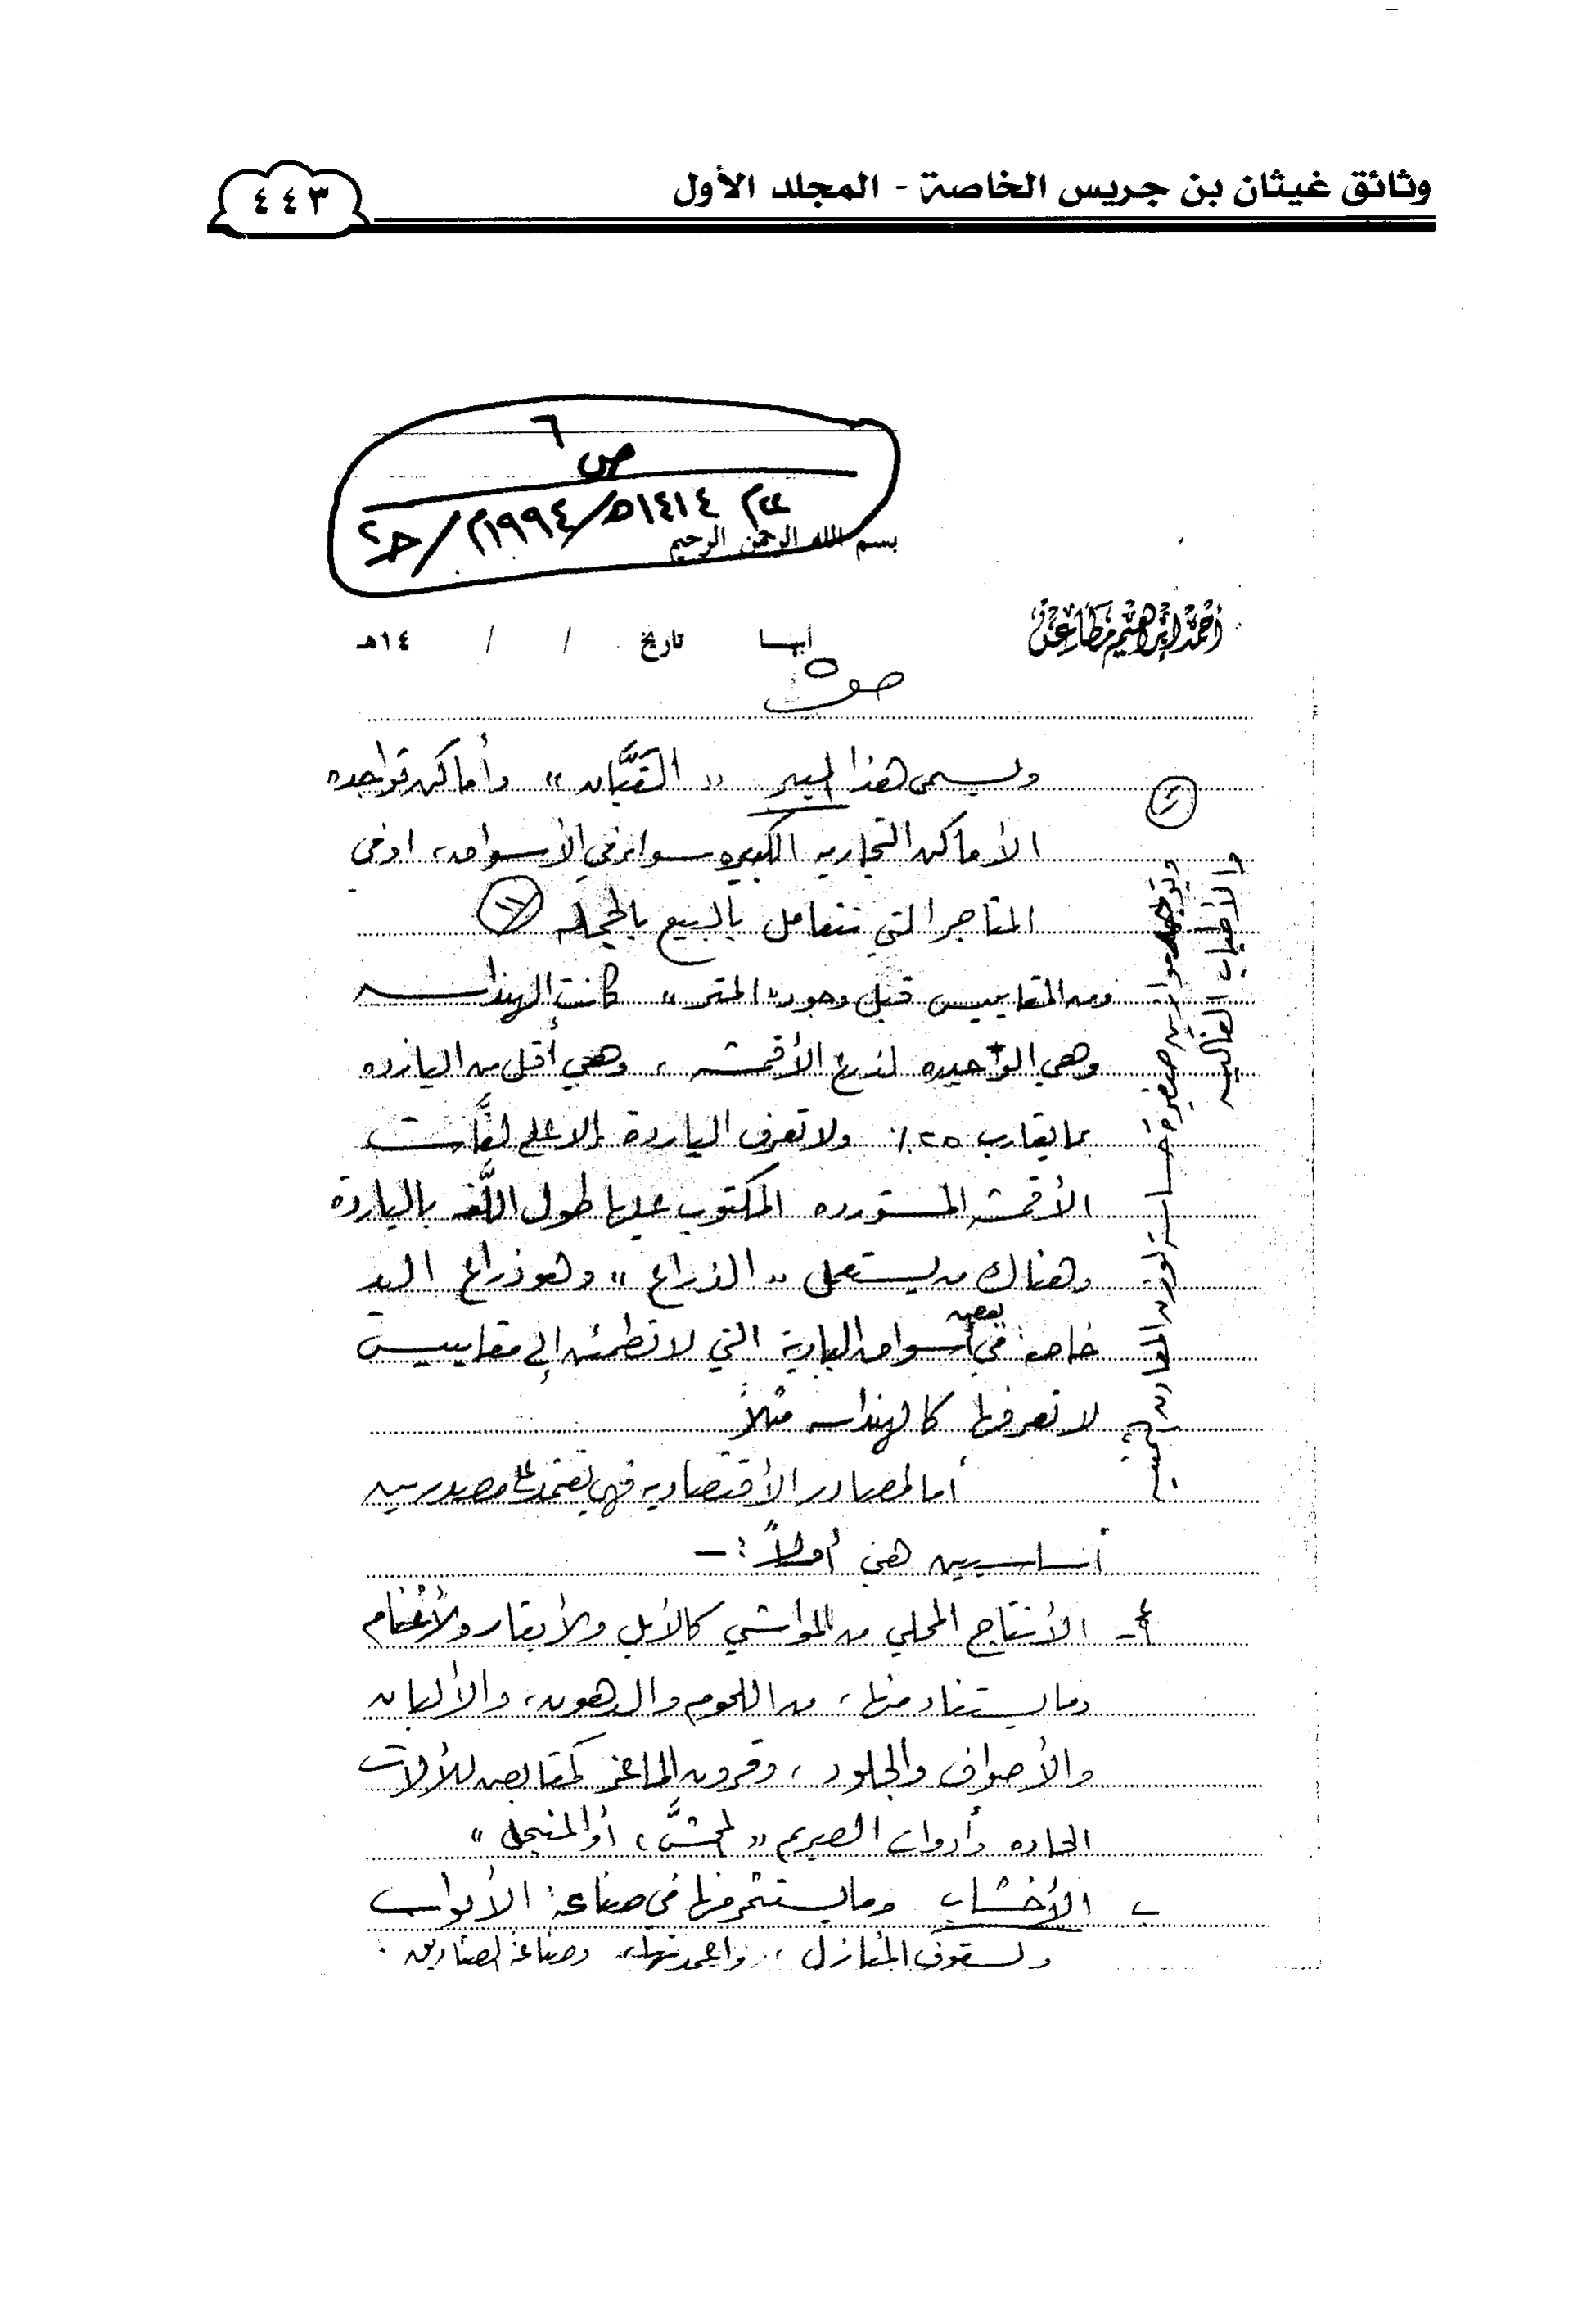 وثائق غيثان بن جريس الخاصة - المجلد الأول
٤٤٣
ص ٦
١٤١٤هـ/١٩٩٤م/ح٢
بسم الله الرحمن الرحيم
أحمد إبراهيم مطاعن
أبها تاريخ / / ١٤هـ
ص ٥
ويسمى هذا الميزان «القبَّان» وأماكن تواجده
الأماكن التجاريه الكبيره سواء في الأسواق، اوفي
المتاجر التي تتعامل بالبيع بالجمله
ومن المقاييس قبل وجود «المتر» كانت الهنداسه
وهي الوحيده لذرع الأقمشه، وهي أقل من اليارده
بما يقارب ٢٥٪ ولا تعرف الياردة إلا على لفَّات
الأقمشه المستورده المكتوب عليها طول اللَّفه بالياردة
وهناك من يستعمل «الذراع» وهو ذراع اليد
خاصة في بعض أسواق البادية التي لا تطمئن إلى مقاييس
لا تعرفها كالهنداسه مثلاً
أما المصادر الأقتصاديه فهي تعتمد على مصدرين
أساسيين هي أولاً :-
أ- الأنتاج المحلي من المواشي كالأبل والأبقار والأغنام
وما يستفاد منها، من اللحوم والدهون، والألبان
والأصواف والجلود، وقرون الماعز كمقابض للألات
الحاده وأدوات الصريم «المحشَّ، أو المنجل»
ب الأخشاب وما يستثمر منها في صناعة الأبواب
وسقوف المنازل، واعمدتها، وصناعة الصناديق
وتوجد موازين صغيرة
والأطياب الغاليه